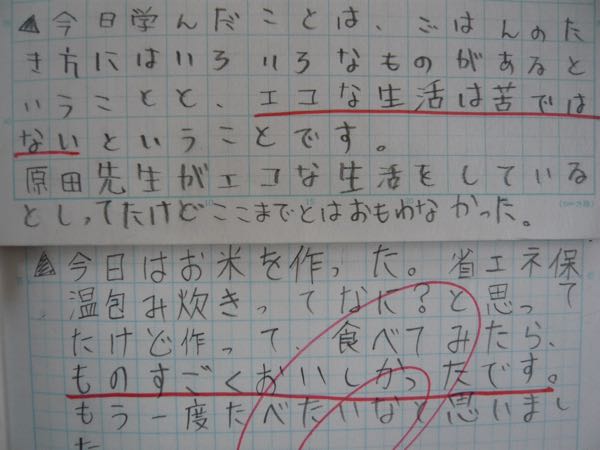 ▲今日学んだことは、ごはんのた
き方にはいろいろなものがあると
いうことと、エコな生活は苦では
ないということです。
原田先生がエコな生活をしている
としってたけどここまでとはおもわなかった。
▲今日はお米を作った。省エネ保
温包み炊きってなに?と思って
たけど作って、食べてみたら、
ものすごくおいしかったです。
もう一度たべたいなと思いまし
た